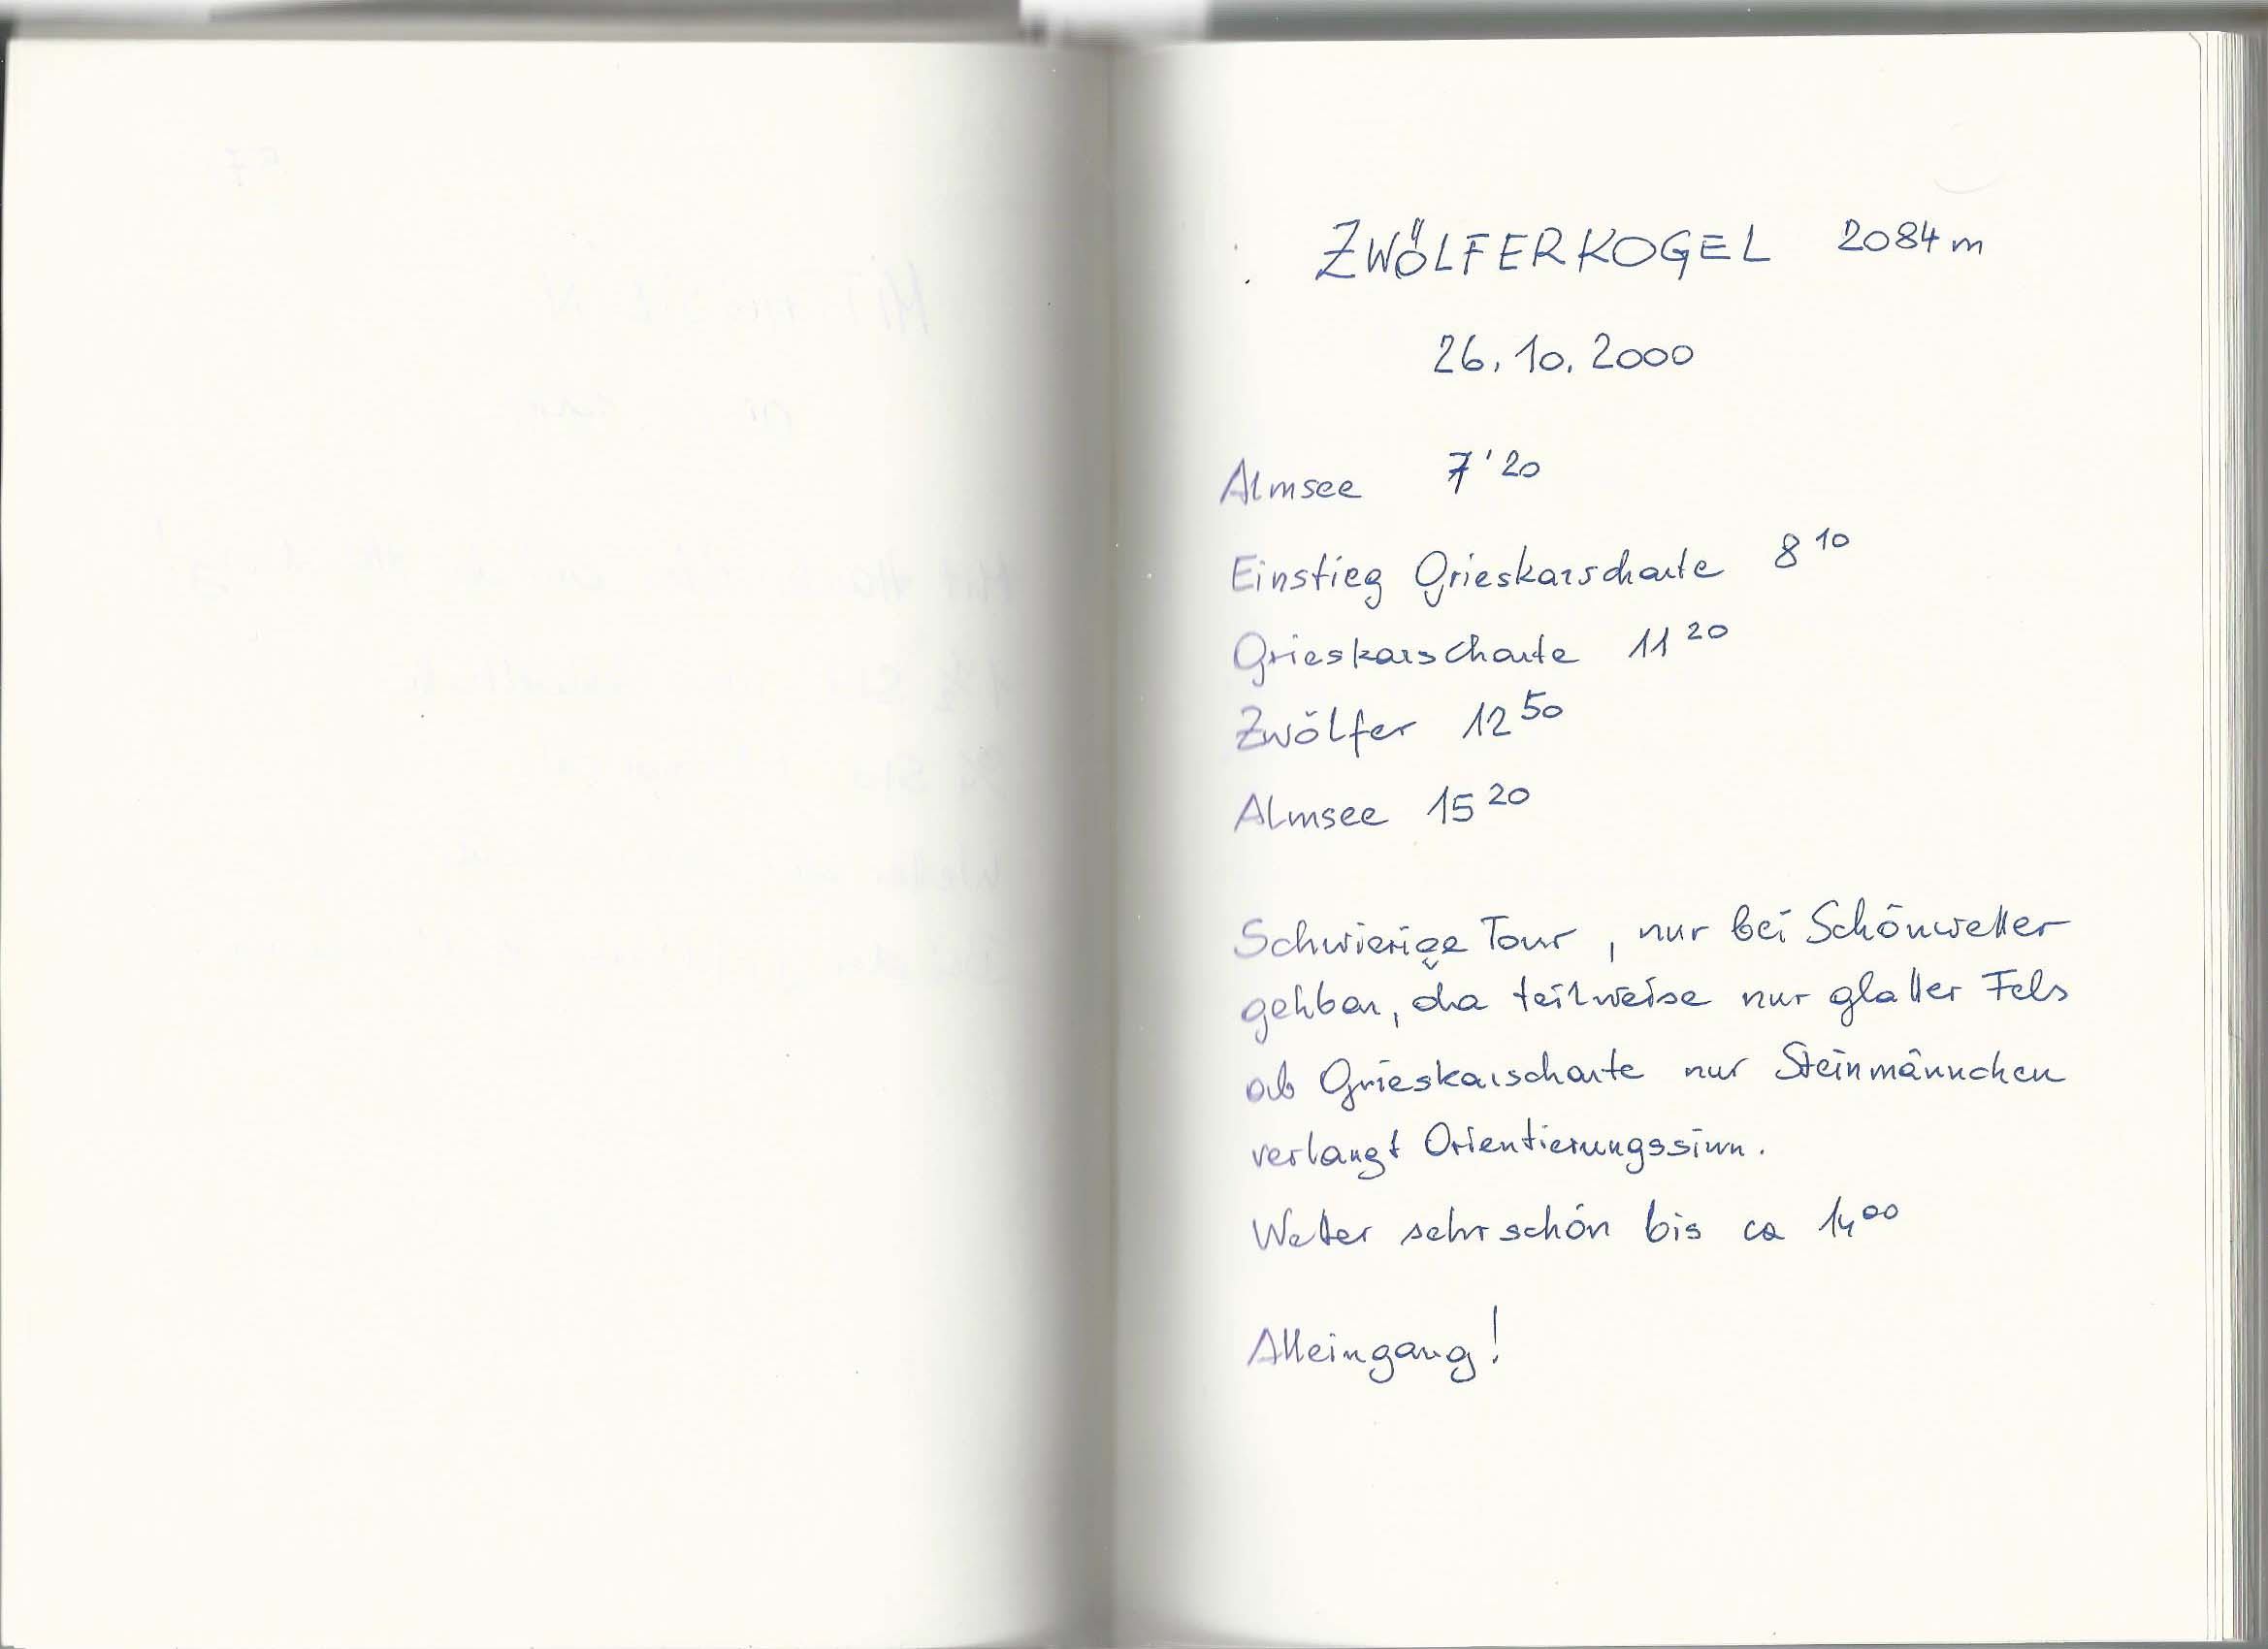 ZWÖLFERKOGEL 2084m
26.10.2000
Almsee 7'20
Einstieg Grieskarscharte 8 10
Grieskarscharte 11 20
Zwölfer 12 50
Almsee 15 20
Schwierige Tour, nur bei Schönwetter
gehbar, da teilweise nur glatter Fels
ab Grieskarscharte nur Steinmännchen
verlangt Orientierungssinn.
Wetter sehr schön bis ca 14 00
Alleingang!